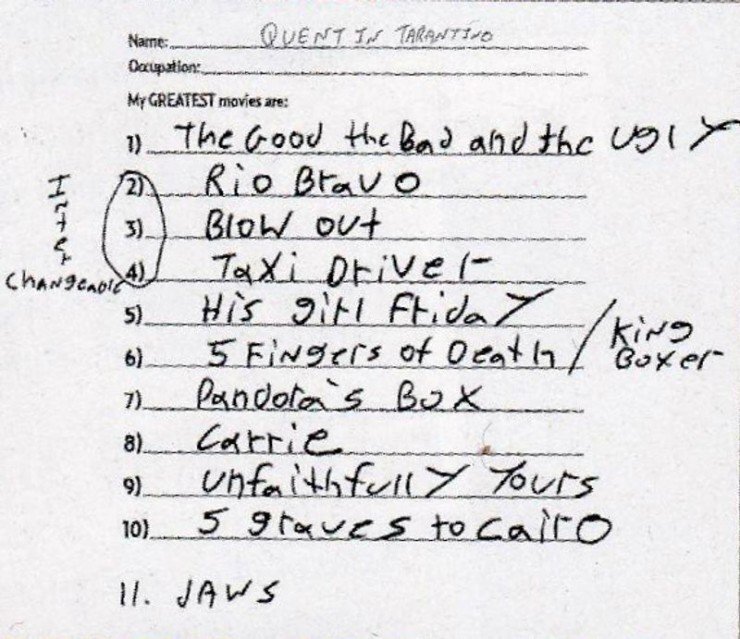 Name: QUENTIN TARANTINO
Occupation:
My GREATEST movies are:
1) The Good the Bad and the UglY
2) Rio Bravo
3) Blow out
4) Taxi Driver
Interchangeable
5) His girl Friday
6) 5 Fingers of Death / King Boxer
7) Pandora's Box
8) Carrie
9) unfaithfully Yours
10) 5 graves to Cairo
11. JAWS